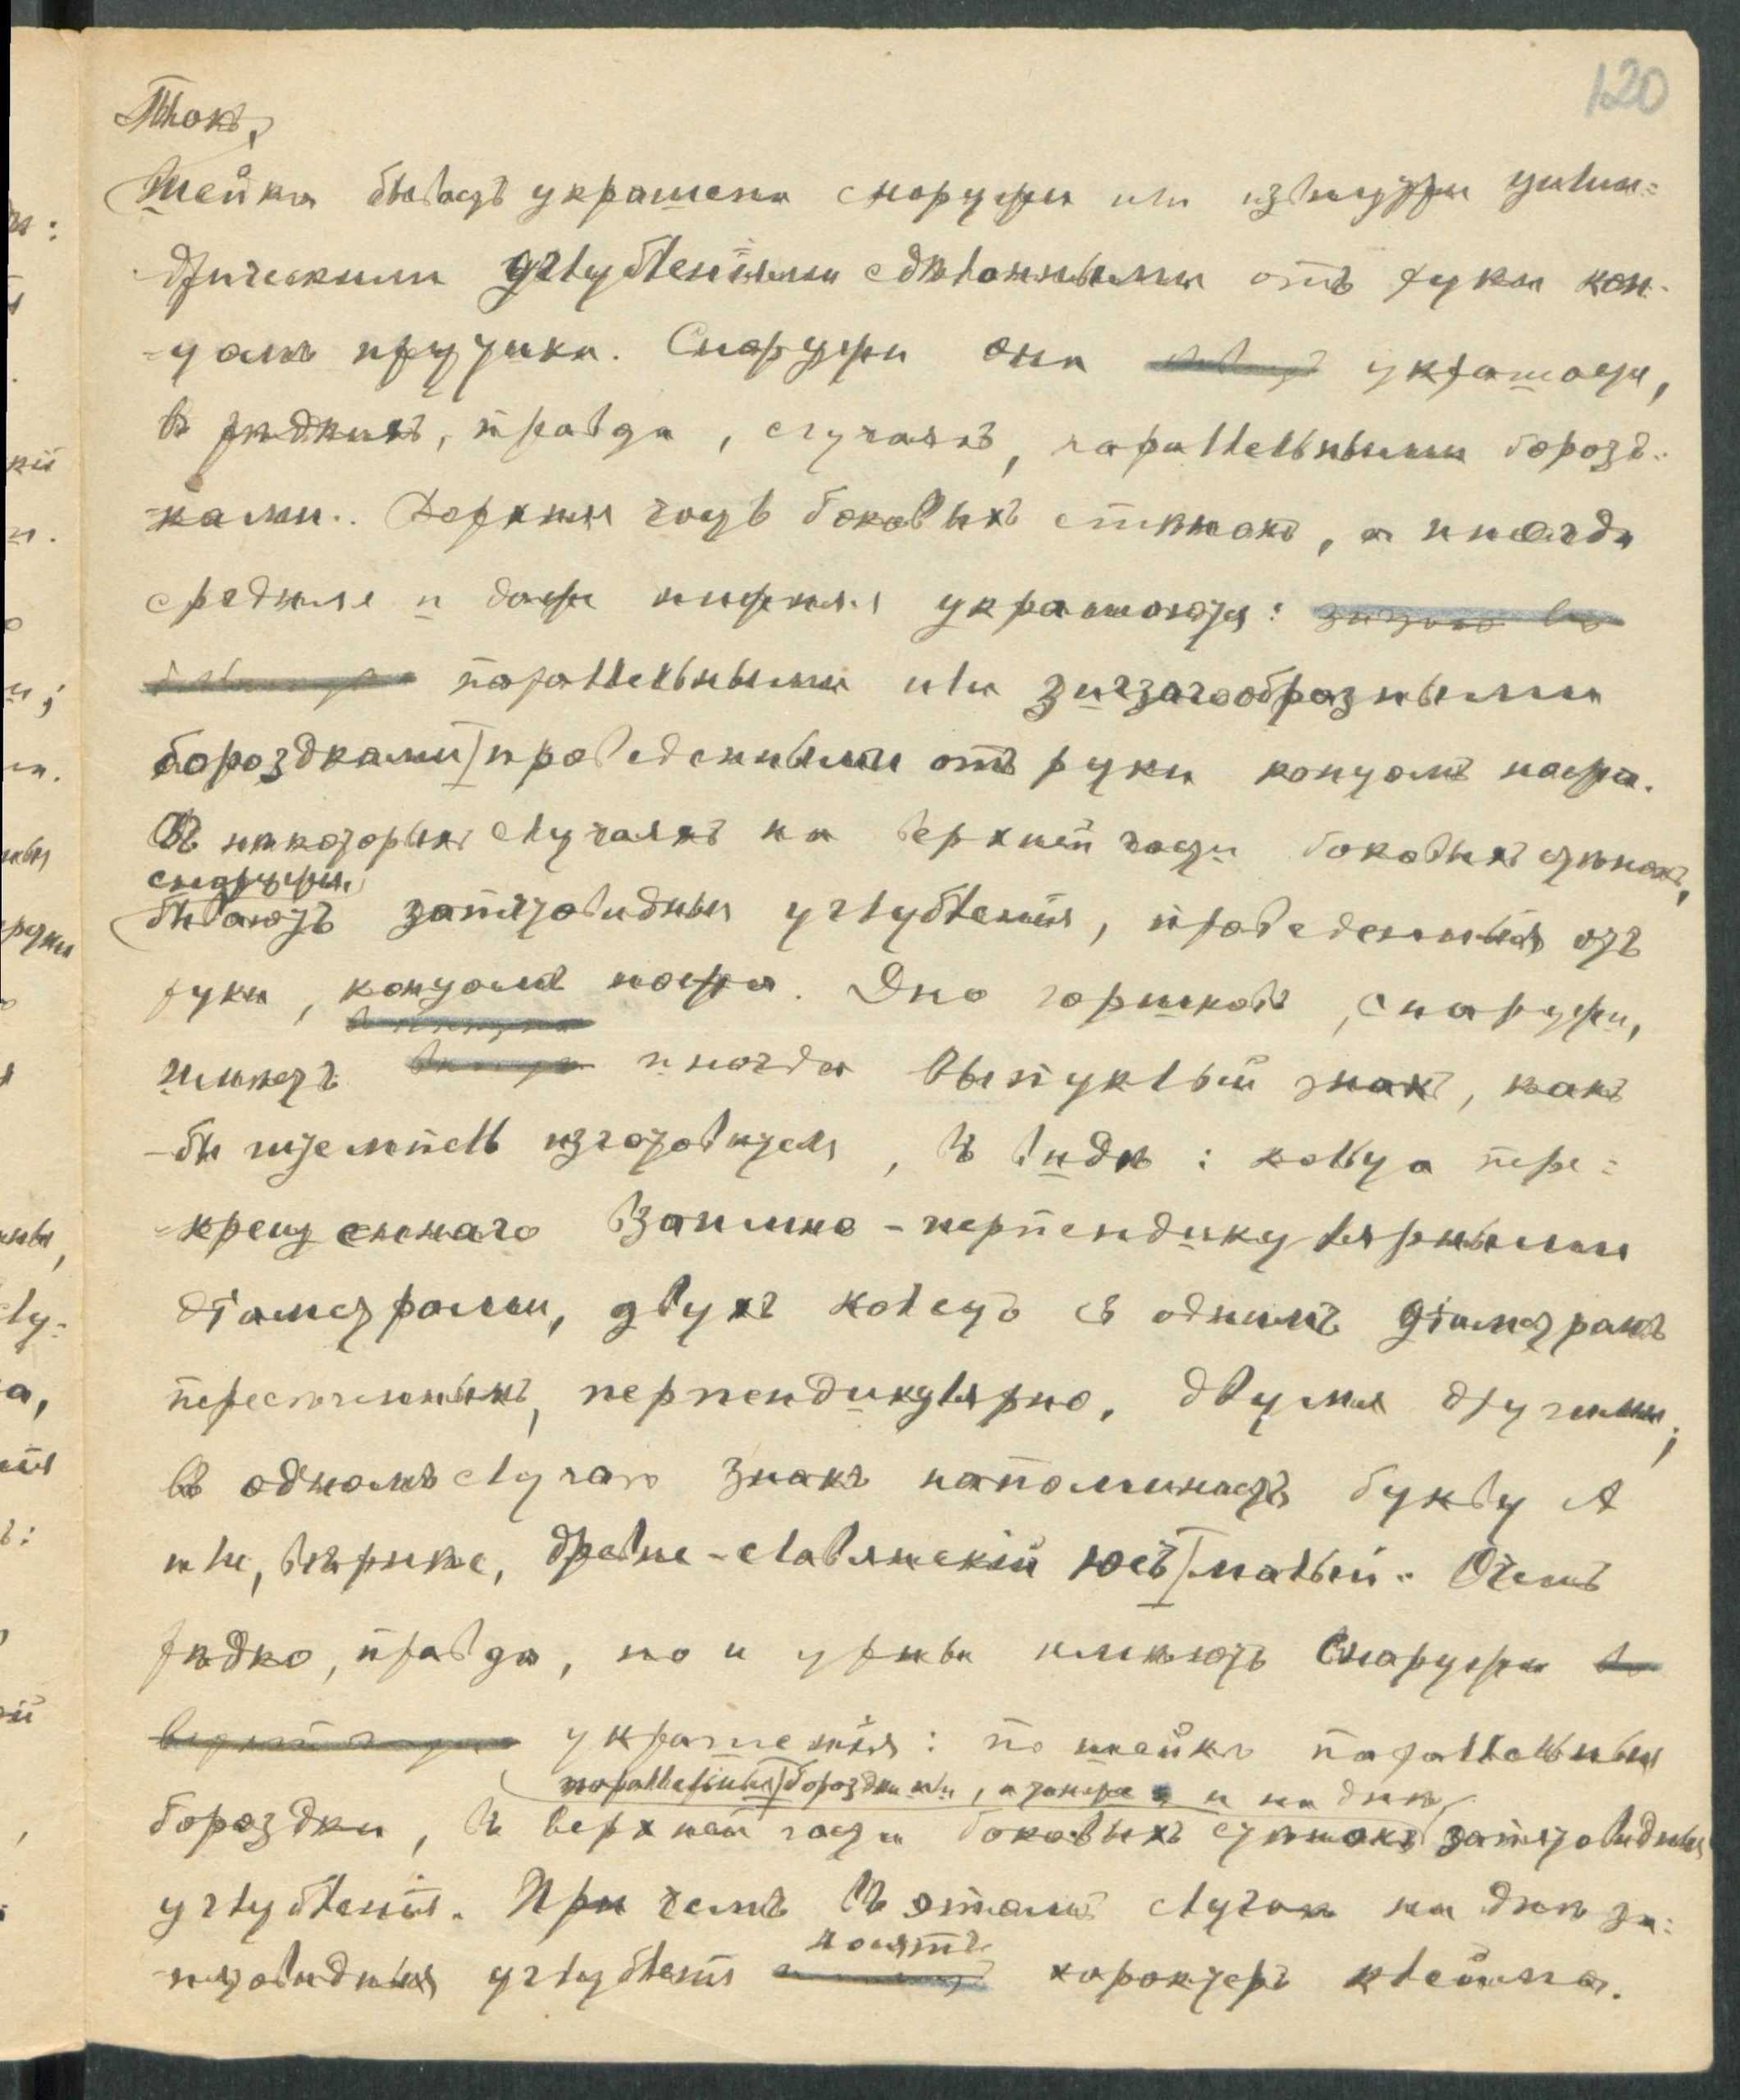 120
Шейка бываетъ украшена снаружи или извнутри цилин=
дрическими углубленіями сдѣланными отъ руки кон-
-цомъ прутика. Снаружи она украшает,
въ рѣдкихъ, правда, случаяхъ, параллельными борозд-
-ками. Верхняя часть боковыхъ стѣнокъ, а иногда
средняя и даже нижняя украшаются:
параллельными или зигзагообразными
бороздками проведенными отъ руки концомъ ножа.
Въ нѣкоторыхъ случаяхъ на верхней части боковыхъ стѣнокъ,
снаружи,
бываютъ запятовидныя углубленія, проведенныя отъ
руки, концомъ ножа. Дно горшковъ, снаружи,
имѣетъ иногда выпуклый знакъ, какъ
-бы штемпель изготовителя, въ видѣ: кольца пере=
-крещеннаго взаимно-перпендикулярными
діаметрами, двухъ колецъ съ однимъ діаметромъ
пересѣченныхъ, перпендикулярно, двумя другими;
въ одномъ случаѣ знакъ напоминаетъ букву А
или, вѣрнѣе, древне-славянскій юсъ малый. Очень
рѣдко, правда, но и урны имѣютъ снаружи
украшенія: по шейкѣ параллельныя
параллельныя бороздки или, а также и на днѣ
бороздки, въ верхней части боковыхъ стѣнокъ запятовидныя
углубленія. При чемъ въ этомъ случаѣ на днѣ за=
-пятовидныя углубленія носятъ характеръ клейма.